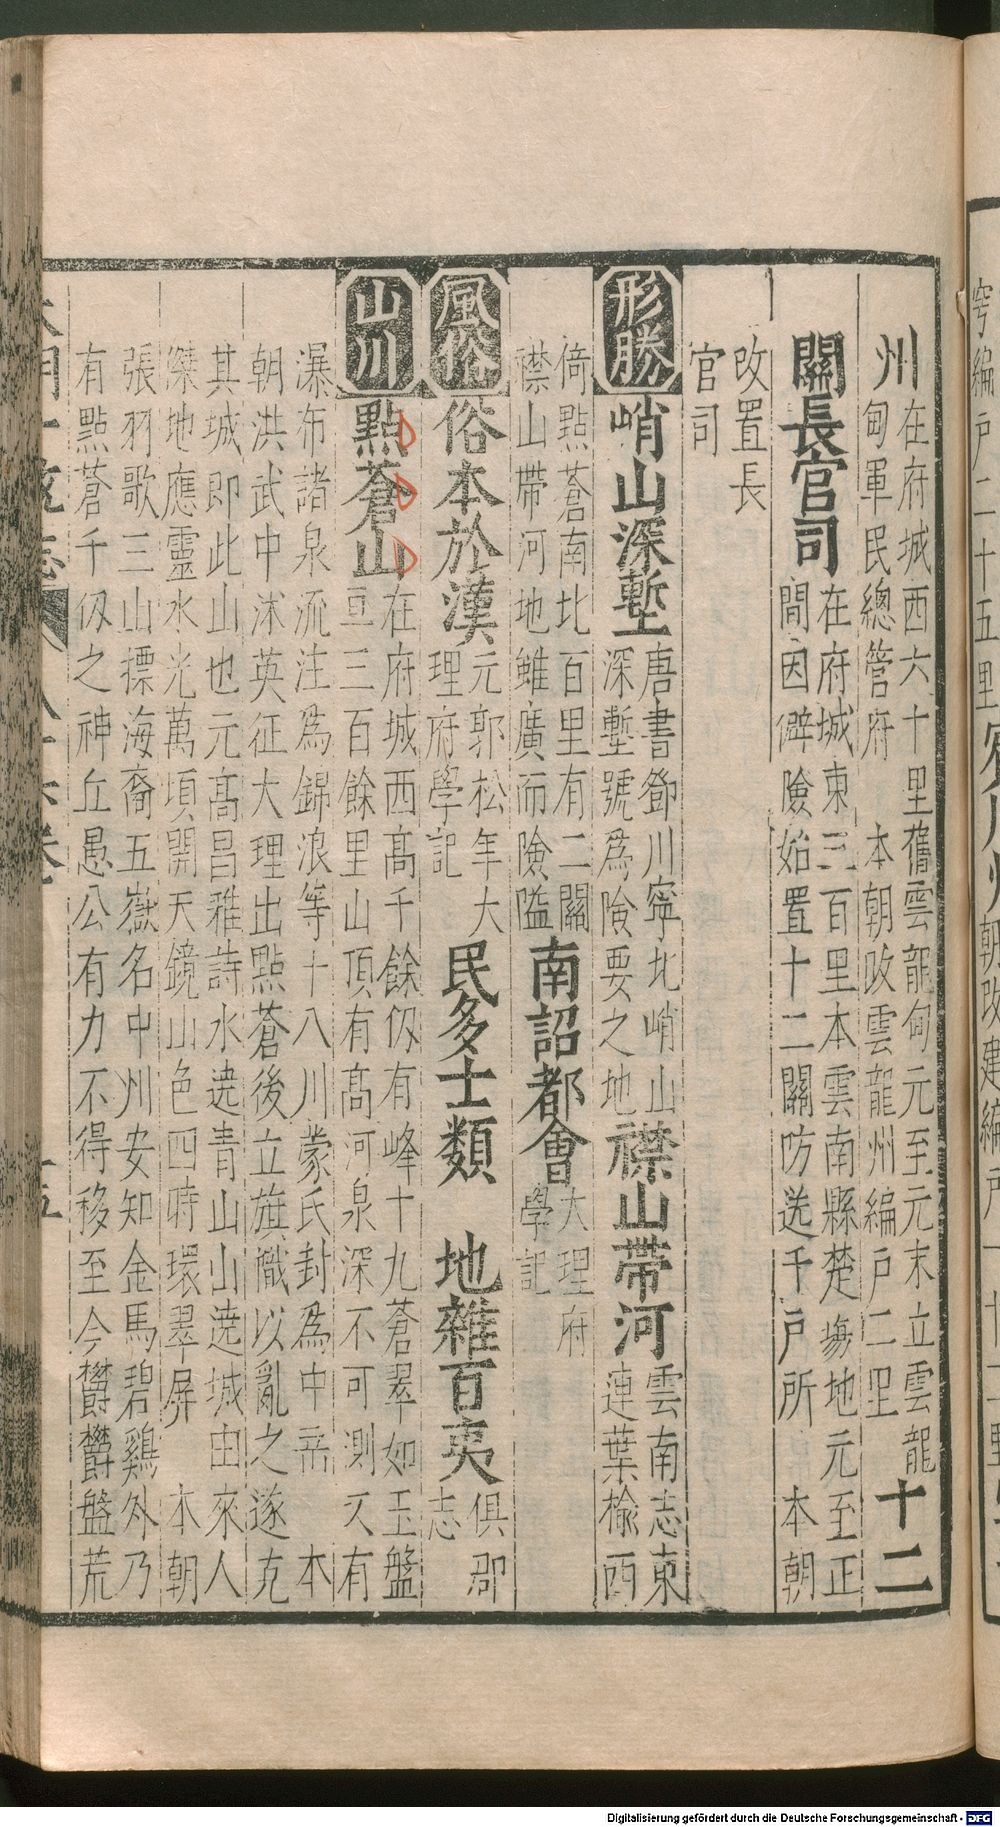 州在府城西六十里舊雲龍甸元至元末立雲龍
甸軍民總管府 本朝改雲龍州編戶二里 十二
關長官司在府城東三百里本雲南縣楚場地元至正
間因僻險始置十二關防送千戶所 本朝
改置長
官司
形勝 峭山深塹唐書鄧川寧北峭山
深塹號為險要之地 襟山帶河雲南志東
連葉榆西
倚點蒼南北百里有二關
襟山帶河地雖廣而險隘 南詔都會大理府
學記
風俗 俗本於漢元郭松年大
理府學記 民多士類 地雜百夷俱郡
志
山川 點蒼山在府城西高千餘仭有峰十九蒼翠如玉盤
亘三百餘里山頂有高河泉深不可測又有
瀑布諸泉流注為錦浪等十八川蒙氏封為中岳 本
朝洪武中沐英征大理出點蒼後立旗幟以亂之遂克
其城即此山也元高昌雅詩水遶青山山遶城由來人
傑地應靈水光萬頃開天鏡山色四時環翠屏 本朝
張羽歌三山摽海裔五嶽名中州安知金馬碧鷄外乃
有點蒼千仭之神丘愚公有力不得移至今欝欝盤荒
Digitalisierung gefördert durch die Deutsche Forschungsgemeinschaft - DFG